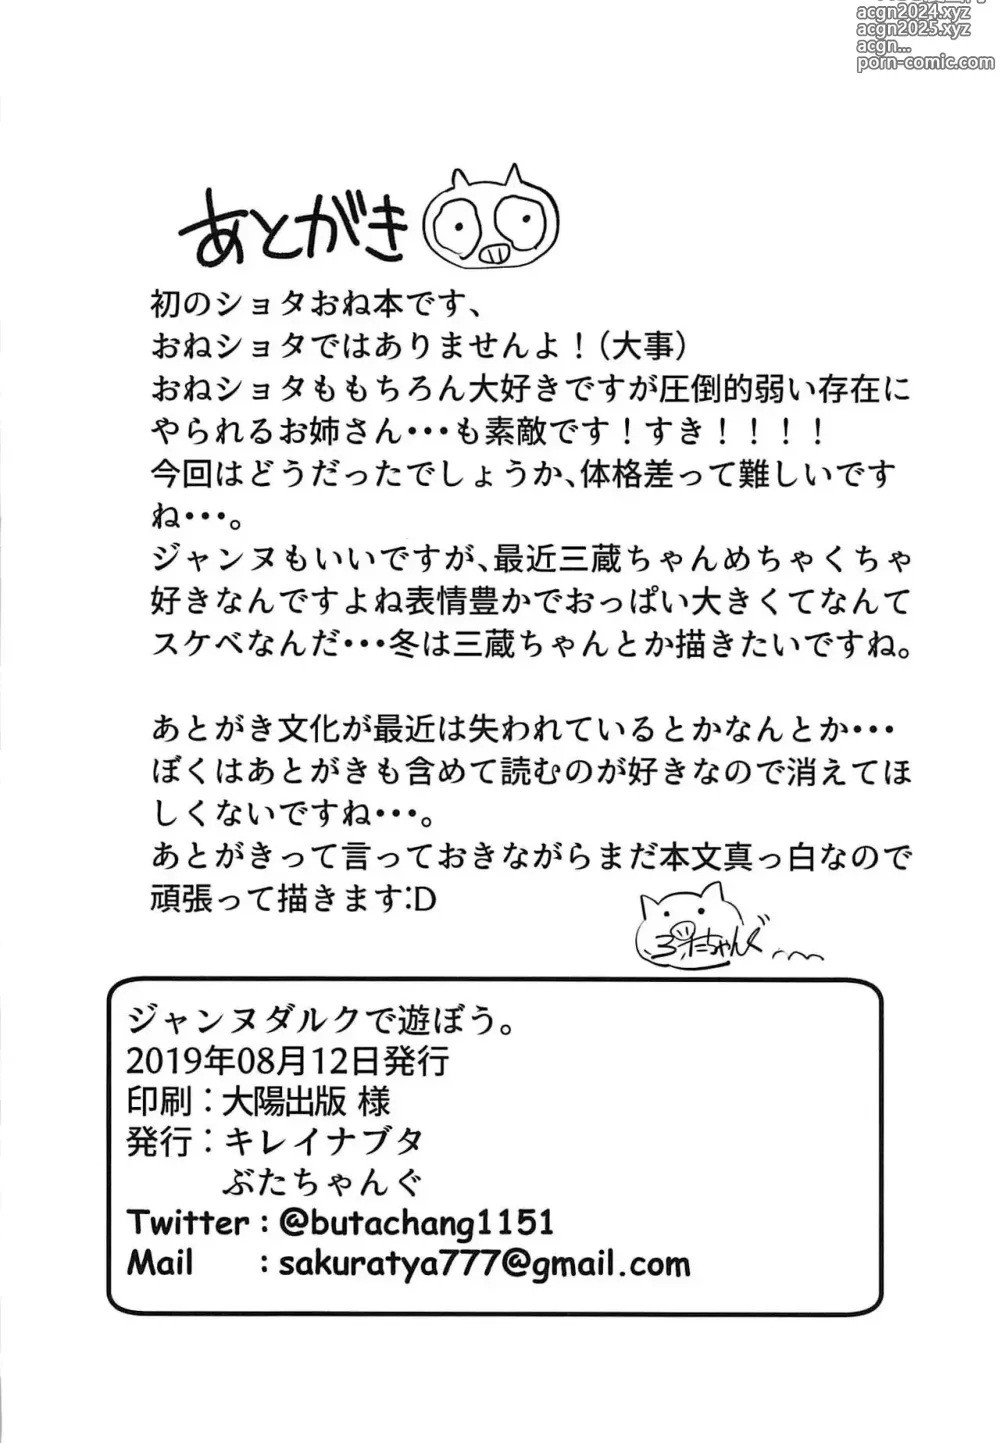 acgn2024.xyz
acgn2025.xyz
acgn...
porn-comic.com
あとがき
初のショタおね本です、
おねショタではありませんよ！（大事）
おねショタももちろん大好きですが圧倒的弱い存在に
やられるお姉さん・・・も素敵です！すき！！！！
今回はどうだったでしょうか、体格差って難しいです
ね・・・。
ジャンヌもいいですが、最近三蔵ちゃんめちゃくちゃ
好きなんですよね表情豊かでおっぱい大きくてなんて
スケベなんだ・・・冬は三蔵ちゃんとか描きたいですね。
あとがき文化が最近は失われているとかなんとか・・・
ぼくはあとがきも含めて読むのが好きなので消えてほ
しくないですね・・・。
あとがきって言っておきながらまだ本文真っ白なので
頑張って描きます:D
ぶたちゃんぐ
ジャンヌダルクで遊ぼう。
2019年08月12日発行
印刷：大陽出版 様
発行：キレイナブタ
ぶたちゃんぐ
Twitter : @butachang1151
Mail : sakuratya777@gmail.com